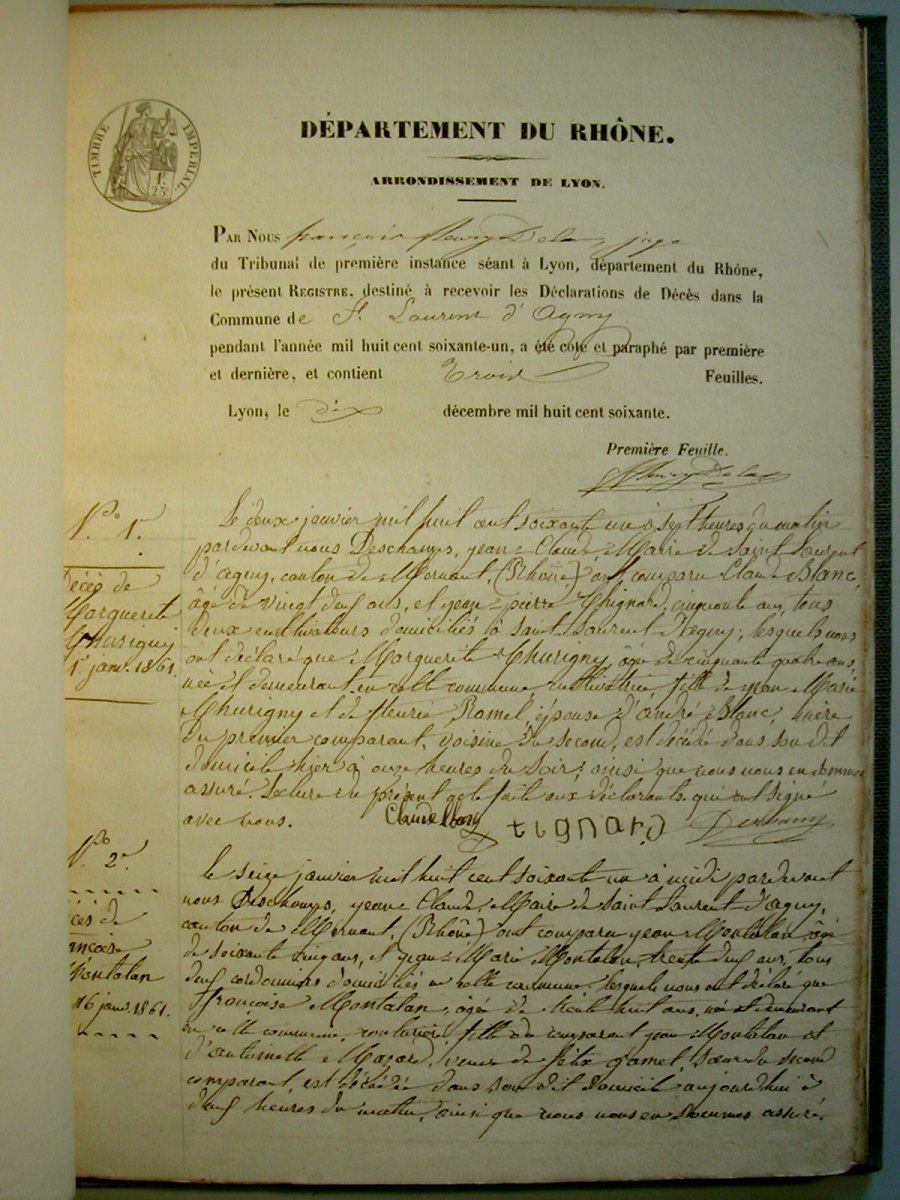 TIMBRE IMPERIAL
1F.
25c
DÉPARTEMENT DU RHÔNE.
ARRONDISSEMENT DE LYON.
PAR NOUS françois fleury juge
du Tribunal de première instance séant à Lyon, département du Rhône,
le présent REGISTRE, destiné à recevoir les Déclarations de Décès dans la
Commune de St Laurent d'Agny
pendant l'année mil huit cent soixante-un, a été coté et paraphé par première
et dernière, et contient Trois Feuilles.
Lyon, le dix décembre mil huit cent soixante.
Première Feuille.
No. 1er
Décès de
Marguerite
Thurigny
1er janv. 1861
Le deux janvier mil huit cent soixante un à sept heures du matin
pardevant nous Deschamps, jean-Claude, Maire de Saint Laurent
d'agny, canton de Mornant, (Rhône) ont comparu Claude Blanc
âgé de vingt neuf ans, et jean-pierre Thignard, cinquante ans, tous
deux cultivateurs domiciliés à Saint Laurent d'Agny; lesquels nous
ont déclaré que Marguerite Thurigny, âgée de cinquante quatre ans,
née et demeurant en cette commune, cultivatrice, fille de Marie
Thurigny et de fleurie Ramel, épouse d'andré Blanc, mère
du premier comparant, voisine du second, est décédée dans son dit
domicile hier à onze heures du soir; ainsi que nous nous en sommes
assuré. Lecture du présent acte faite aux déclarants qui ont signé
avec nous. Claude Blanc tignard Deschamps
No 2e
Décès de
françoise
Montalan
16 janv. 1861.
Le seize janvier mil huit cent soixante un à midi pardevant
nous Deschamps, jean Claude, Maire de Saint Laurent d'agny,
canton de Mornant, (Rhône) ont comparu jean Montalan âgé
de soixante cinq ans, et Marie Montalan, trente neuf ans, tous
deux cordonniers domiciliés en cette commune, lesquels nous ont déclaré que
françoise Montalan, âgée de trente huit ans, née et demeurant
en cette commune, couturière, fille du comparant jean Montalan et
d'antoinette Mazard, veuve de félix gamel, sœur du second
comparant, est décédée dans son dit domicile aujourd'hui à
neuf heures du matin, ainsi que nous nous en sommes assuré.